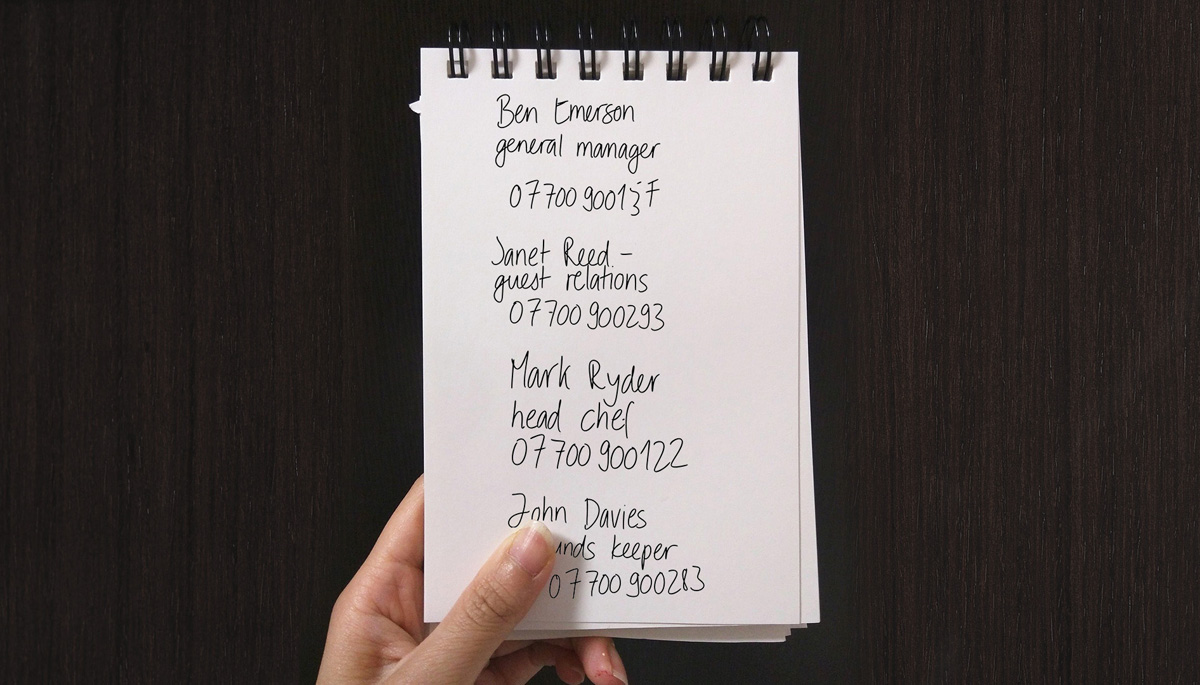 Ben Emerson
general manager
07700 900137
Janet Reed -
guest relations
07700 900293
Mark Ryder
head chef
07700 900122
John Davies
keeper
07700 900283